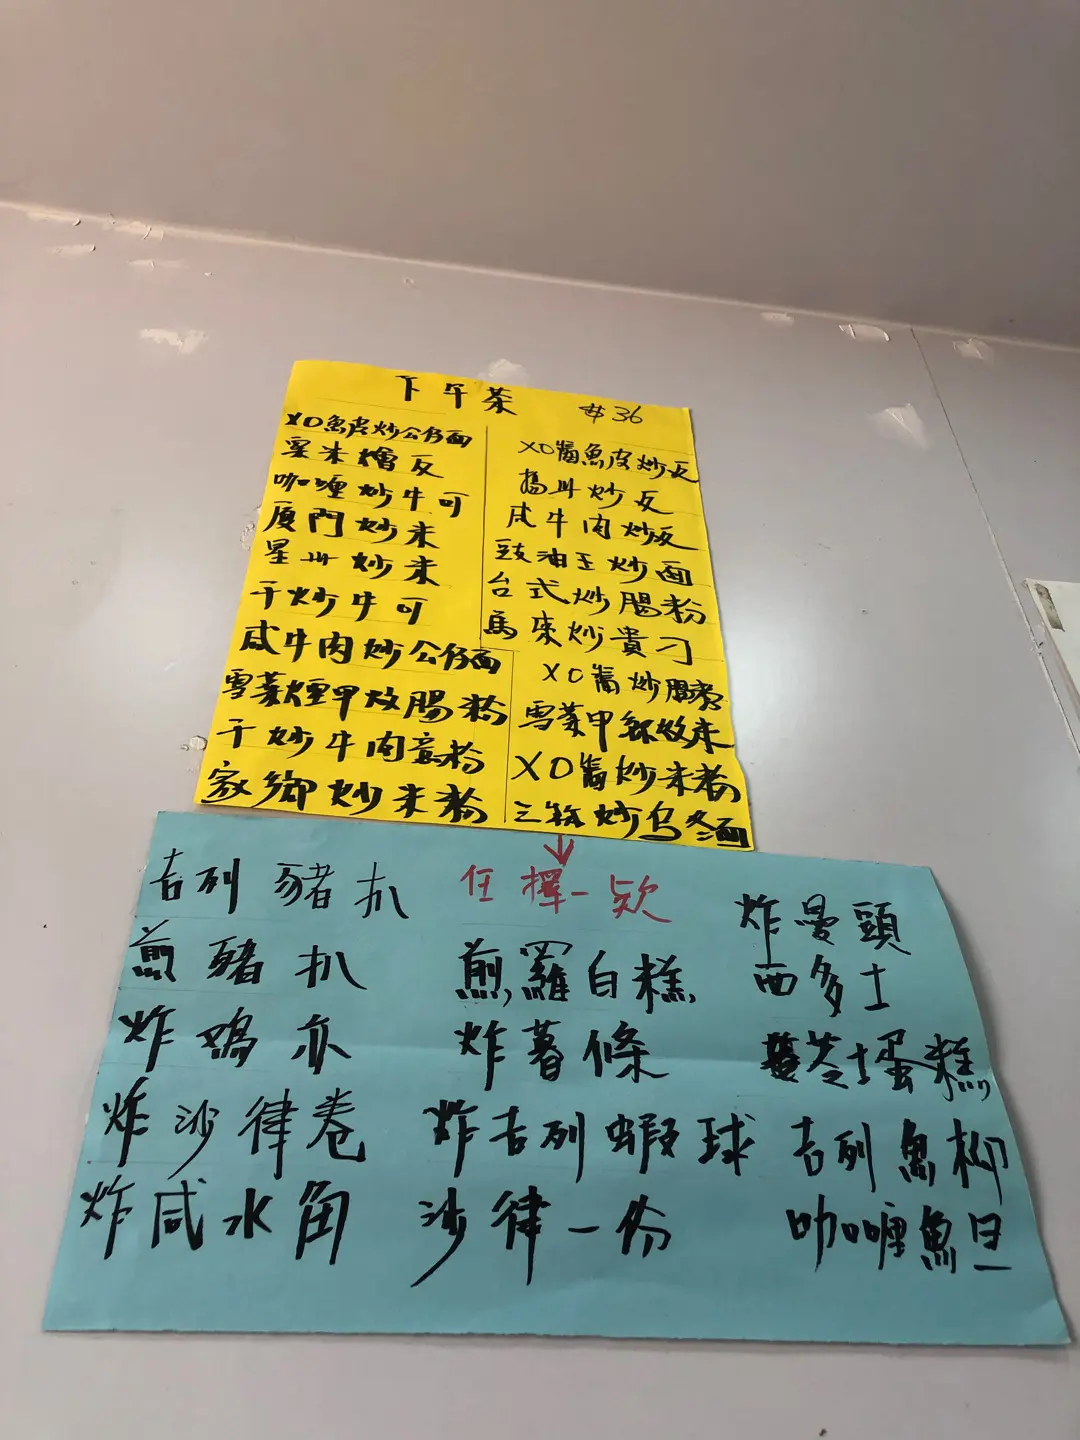 下午茶 #36
XO魚皮炒公仔面
咖喱炒牛可
厦門炒米
星州炒米
干炒牛可
咸牛肉炒公仔面
干炒牛肉意粉
家鄉炒米粉
XO醬魚皮炒反
揚州炒反
咸牛肉炒反
豉油王炒面
台式炒腸粉
馬來炒貴刁
XO醬炒腸粉
XO醬炒米粉
三絲炒烏冬面
任擇一欵
吉列豬扒
煎豬扒
炸鸡亦
炸沙律卷
炸咸水角
煎羅白糕
炸薯條
炸吉列蝦球
沙律一份
炸曼頭
西多士
芝士蛋糕
吉列魚柳
咖喱魚旦